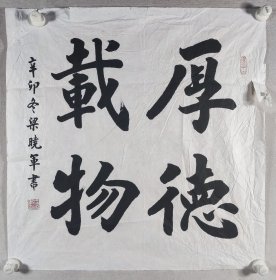 厚德
載物
辛卯冬梁曉軍書